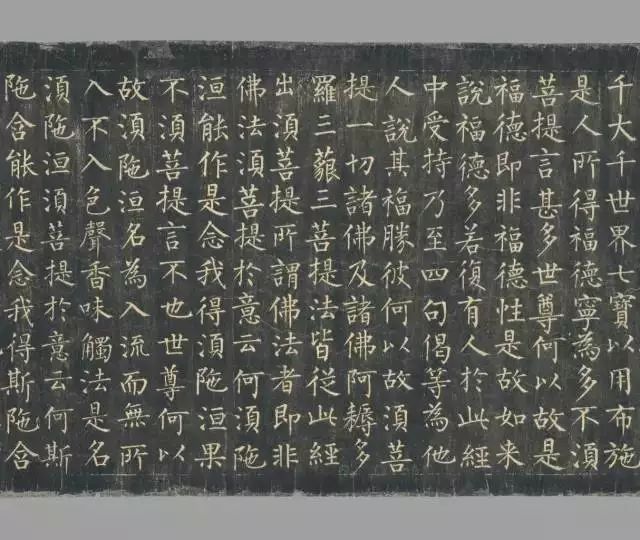 千大千世界七寶以用布施
是人所得福德寧為多不須
菩提言甚多世尊何以故是
福德即非福德性是故如来
說福德多若復有人於此經
中受持乃至四句偈等為他
人說其福勝彼何以故須菩
提一切諸佛及諸佛阿耨多
羅三藐三菩提法皆從此經
出須菩提所謂佛法者即非
佛法須菩提於意云何須陁
洹能作是念我得須陁洹果
不須菩提言不也世尊何以
故須陁洹名為入流而無所
入不入色聲香味觸法是名
須陁洹須菩提於意云何斯
陁含能作是念我得斯陁含